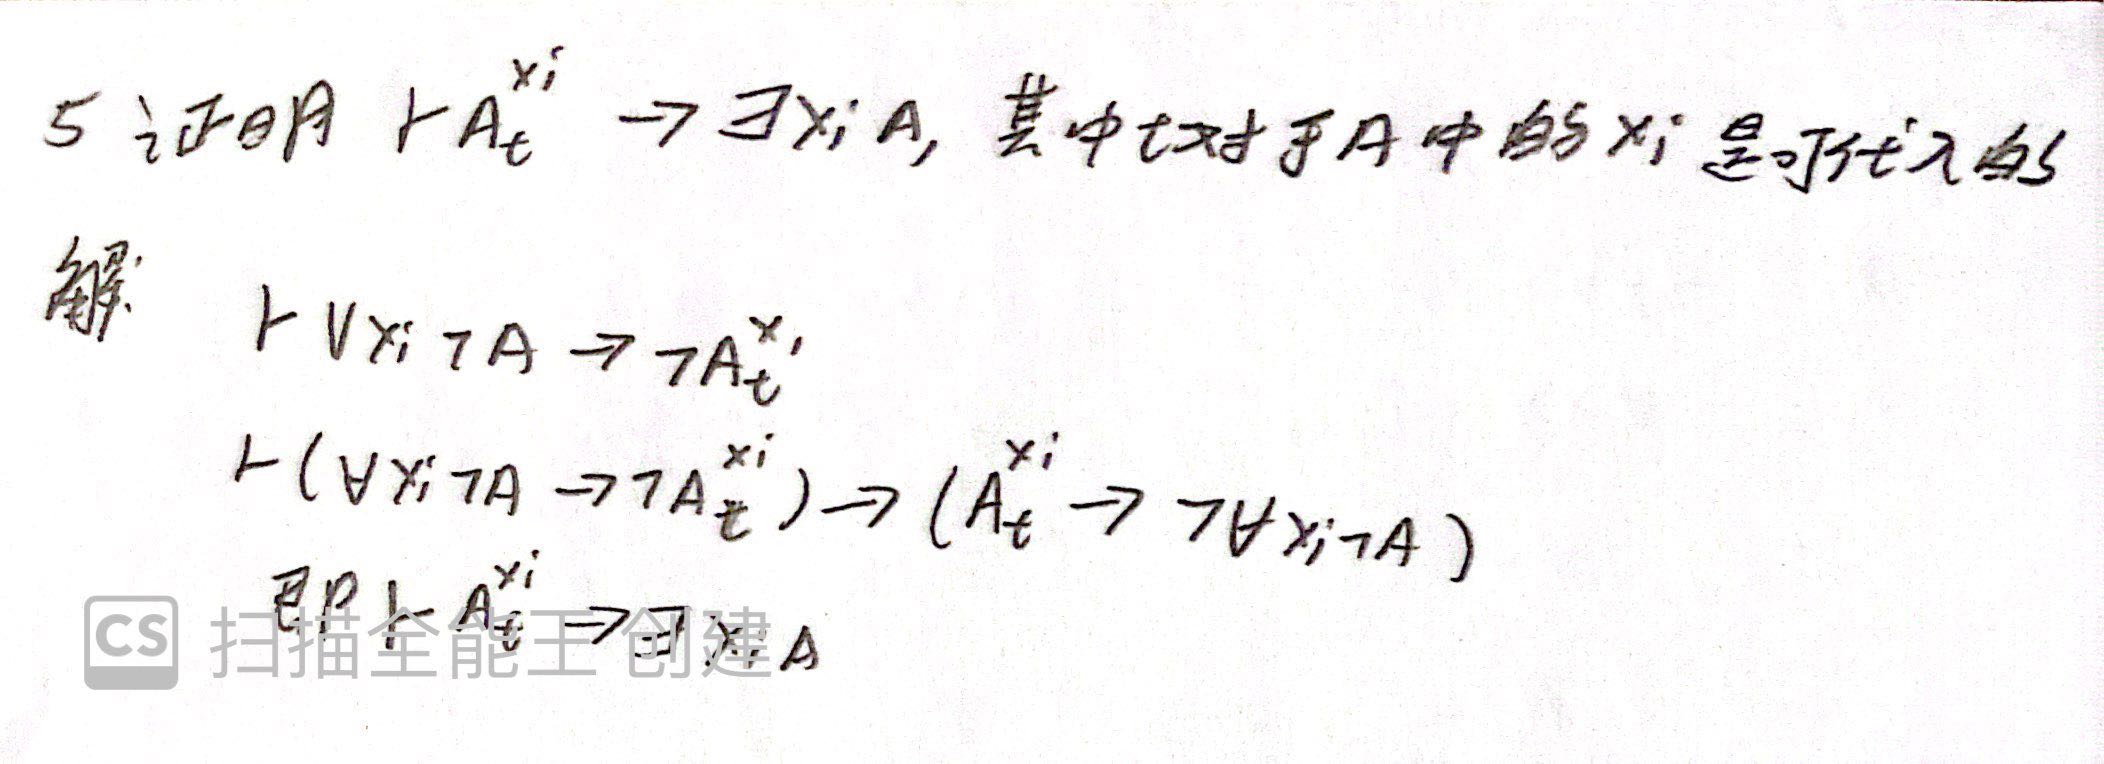 5 证明 ⊢ A_t^{x_i} → ∃x_i A, 其中t对于A中的 x_i 是可代入的
解.
⊢ ∀x_i ¬A → ¬A_t^{x_i}
⊢ (∀x_i ¬A → ¬A_t^{x_i}) → (A_t^{x_i} → ¬∀x_i ¬A)
即 ⊢ A_t^{x_i} → ∃x_i A
CS 扫描全能王 创建